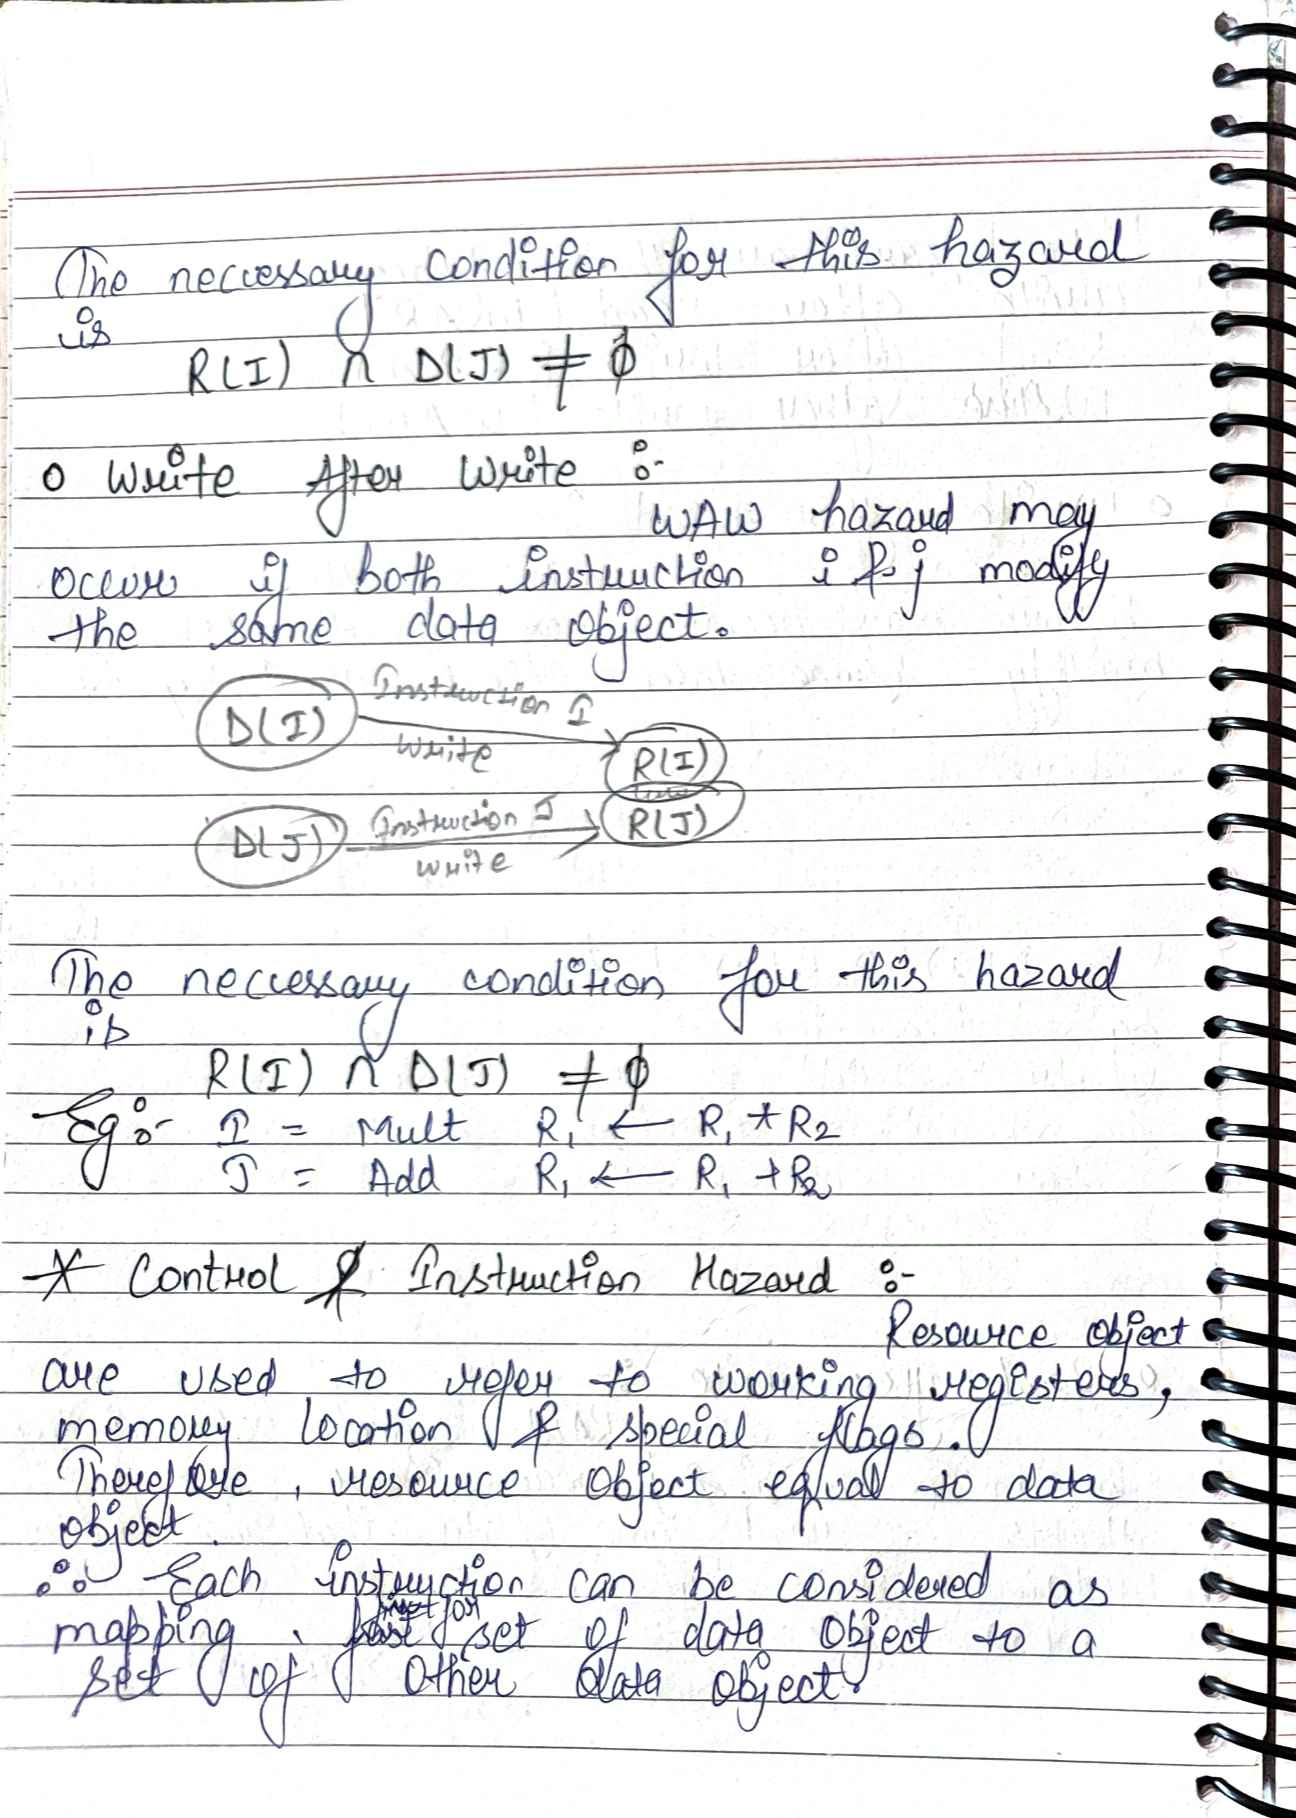 The neccessary condition for this hazard
is
R(I) ∩ D(J) ≠ ϕ
o Write After Write :-
WAW hazard may
occur if both instruction i & j modify
the same data object.
D(I) Instruction I
Write R(I)
D(J) Instruction J R(J)
Write
The neccessary condition for this hazard
is
R(I) ∩ D(J) ≠ ϕ
Eg:- I = Mult R₁ ← R₁ * R₂
J = Add R₁ ← R₁ + R₂
* Control & Instruction Hazard :-
Resource object
are used to refer to working registers,
memory location & special flags.
Therefore, resource object equal to data
object.
∴ Each instruction can be considered as
mapping, for
set of data object to a
set of other data object.